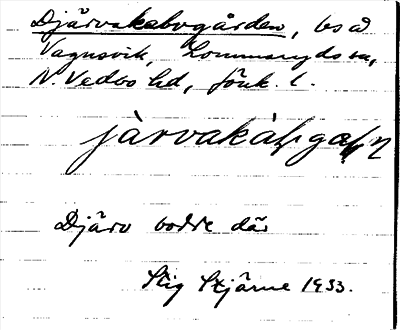 Djärvakabogården, bs ad
Vagnsvik, Lommaryds sn,
N. Vedbo hd, Jönk. l.
järvakà
Djärv bodde där
Stig Stjärne 1933.